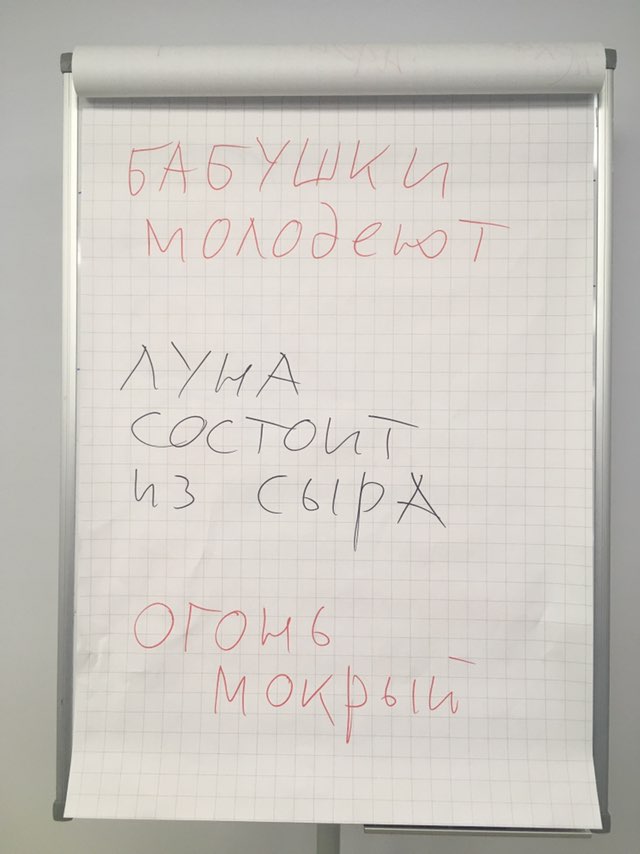 БАБУШКИ
МОЛОДЕЮТ
ЛУНА
СОСТОИТ
ИЗ СЫРА
ОГОНЬ
МОКРЫЙ